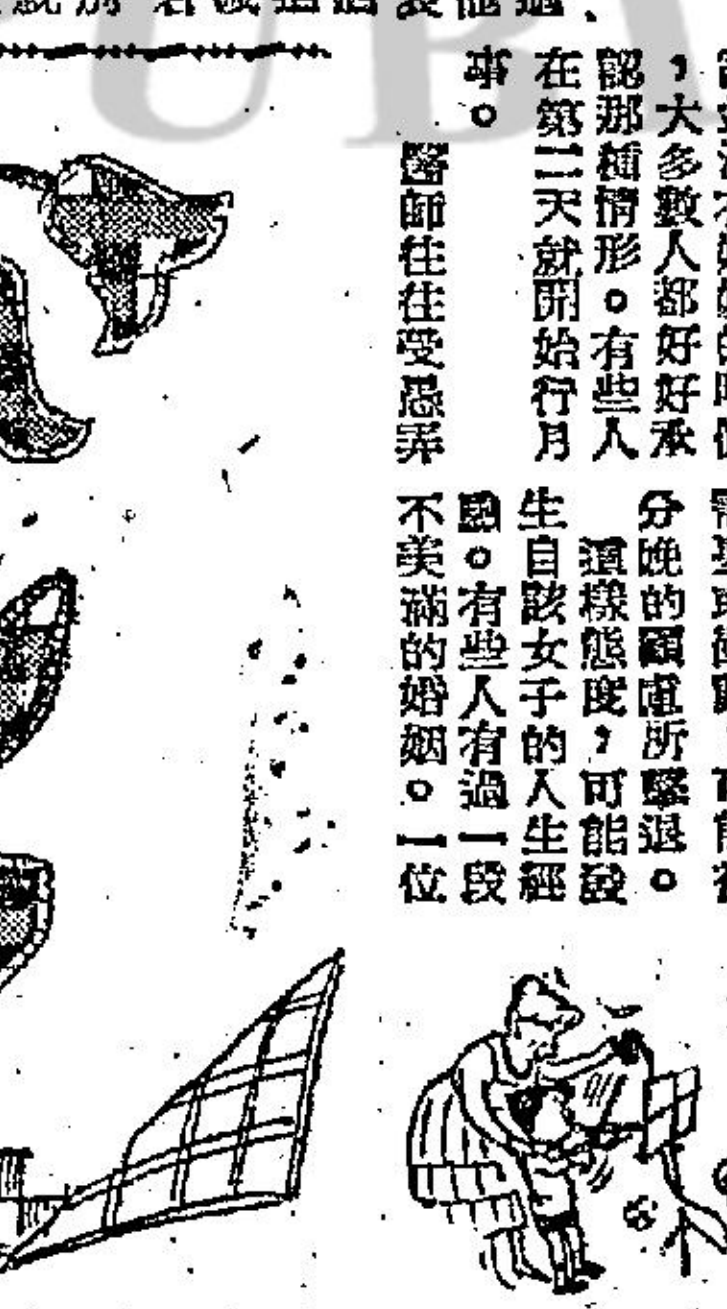 ，大多數人都好好承
認那種情形。有些人
在第二天就開始行月
事。
醫師往往受愚弄
分娩的顧慮所擊退。
這樣態度，可能發
生自該女子的人生經
驗。有些人有過一段
不美滿的婚姻。一位